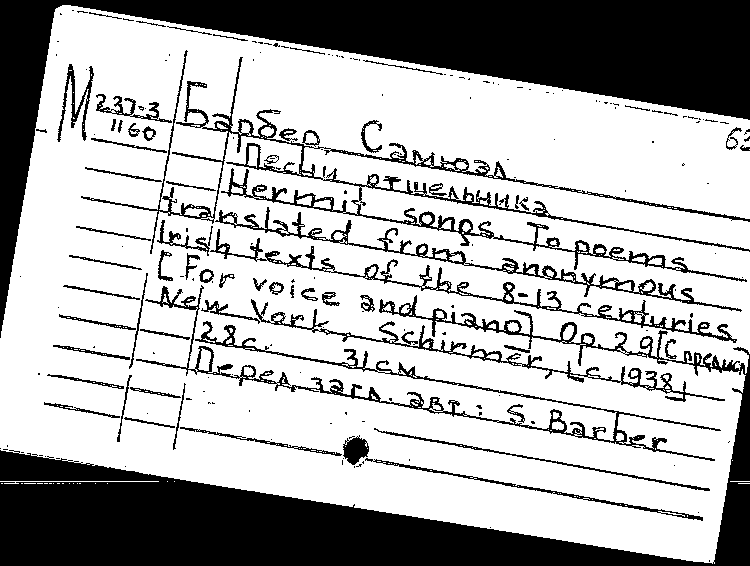 63
М 237-3
1160
Барбер, Самюэл.
Песни отшельника
Hermit songs. To poems
translated from anonymous
Irish texts of the 8-13 centuries.
[For voice and piano] Op. 29 [С предисл
New York, Schirmer, [c. 1938]
28с. 31см.
Перед загл. авт.: S. Barber